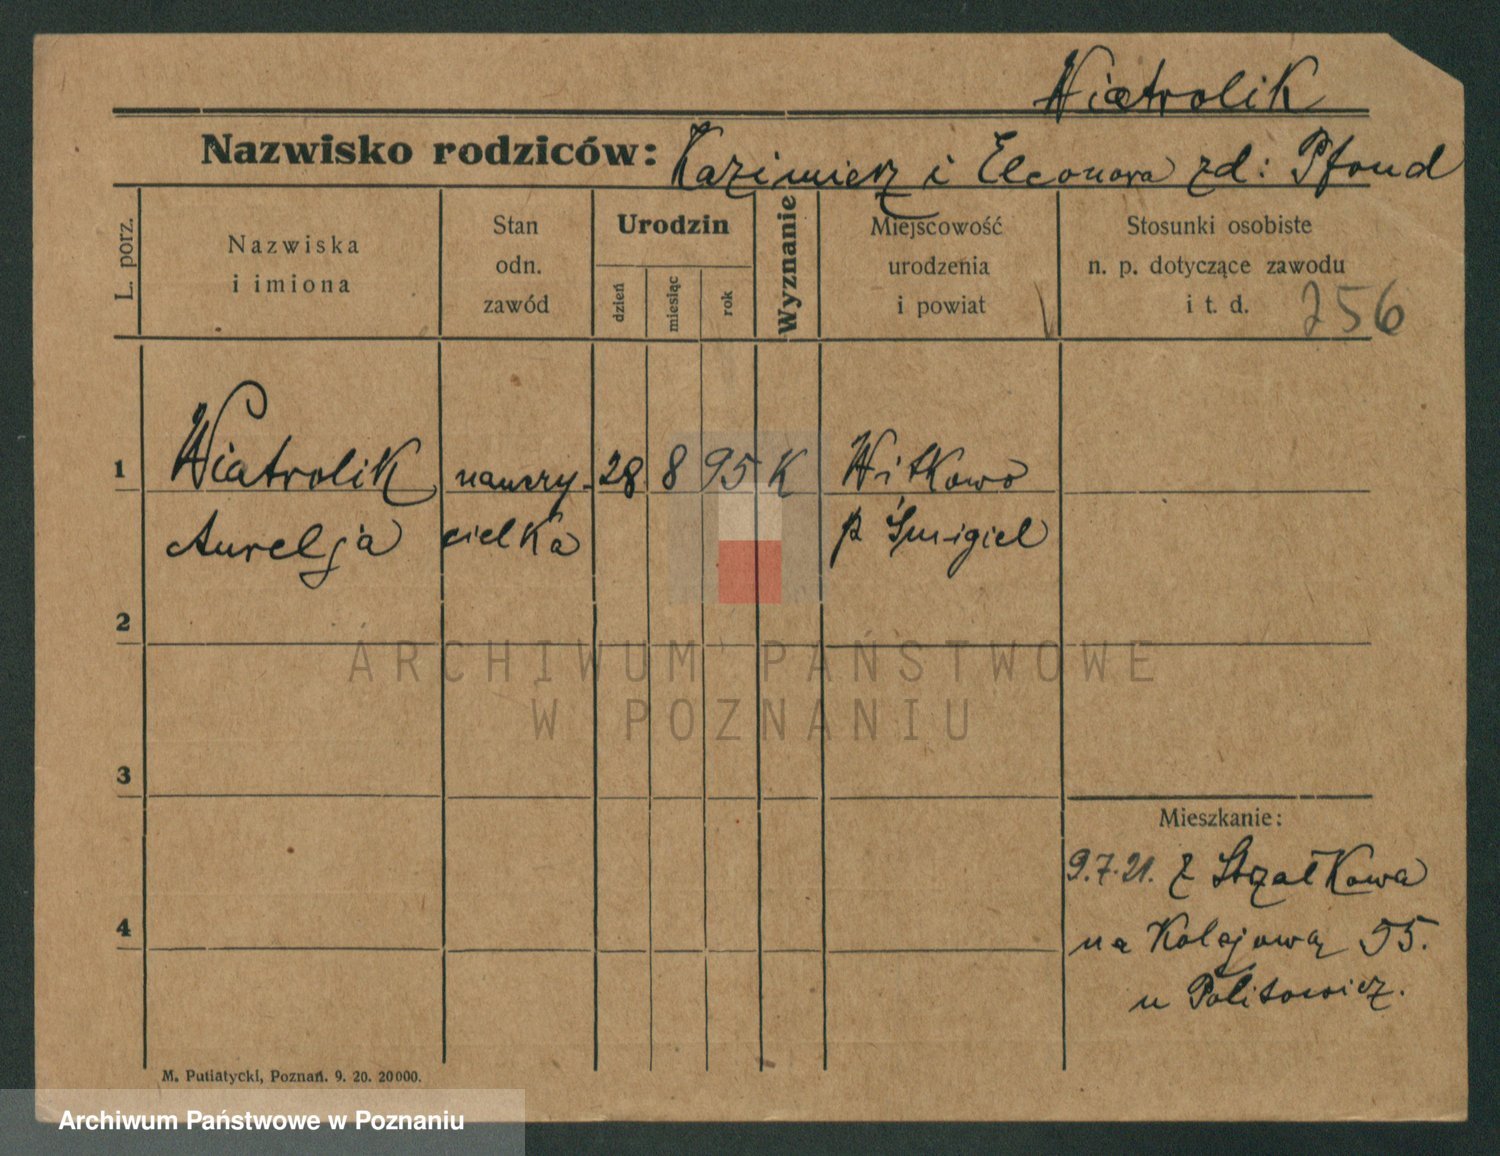 Wiatrolik
Nazwisko rodziców: Kazimierz i Eleonora zd: Pfond
L. porz.
Nazwiska
i imiona
Stan
odn.
zawód
Urodzin
dzień
miesiąc
rok
Wyznanie
Miejscowość
urodzenia
i powiat
Stosunki osobiste
n. p. dotyczące zawodu
i t. d. 256
1 Wiatrolik nauczy- 28 8 95 K Witkowo
Aurelja cielka p Śmigiel
2
ARCHIWUM PAŃSTWOWE
W POZNANIU
3
Mieszkanie:
9.7.21. z Strzałkowa
4
na Kolejową 55.
u Politowicz.
M. Putiatycki, Poznań. 9. 20. 20000.
Archiwum Państwowe w Poznaniu